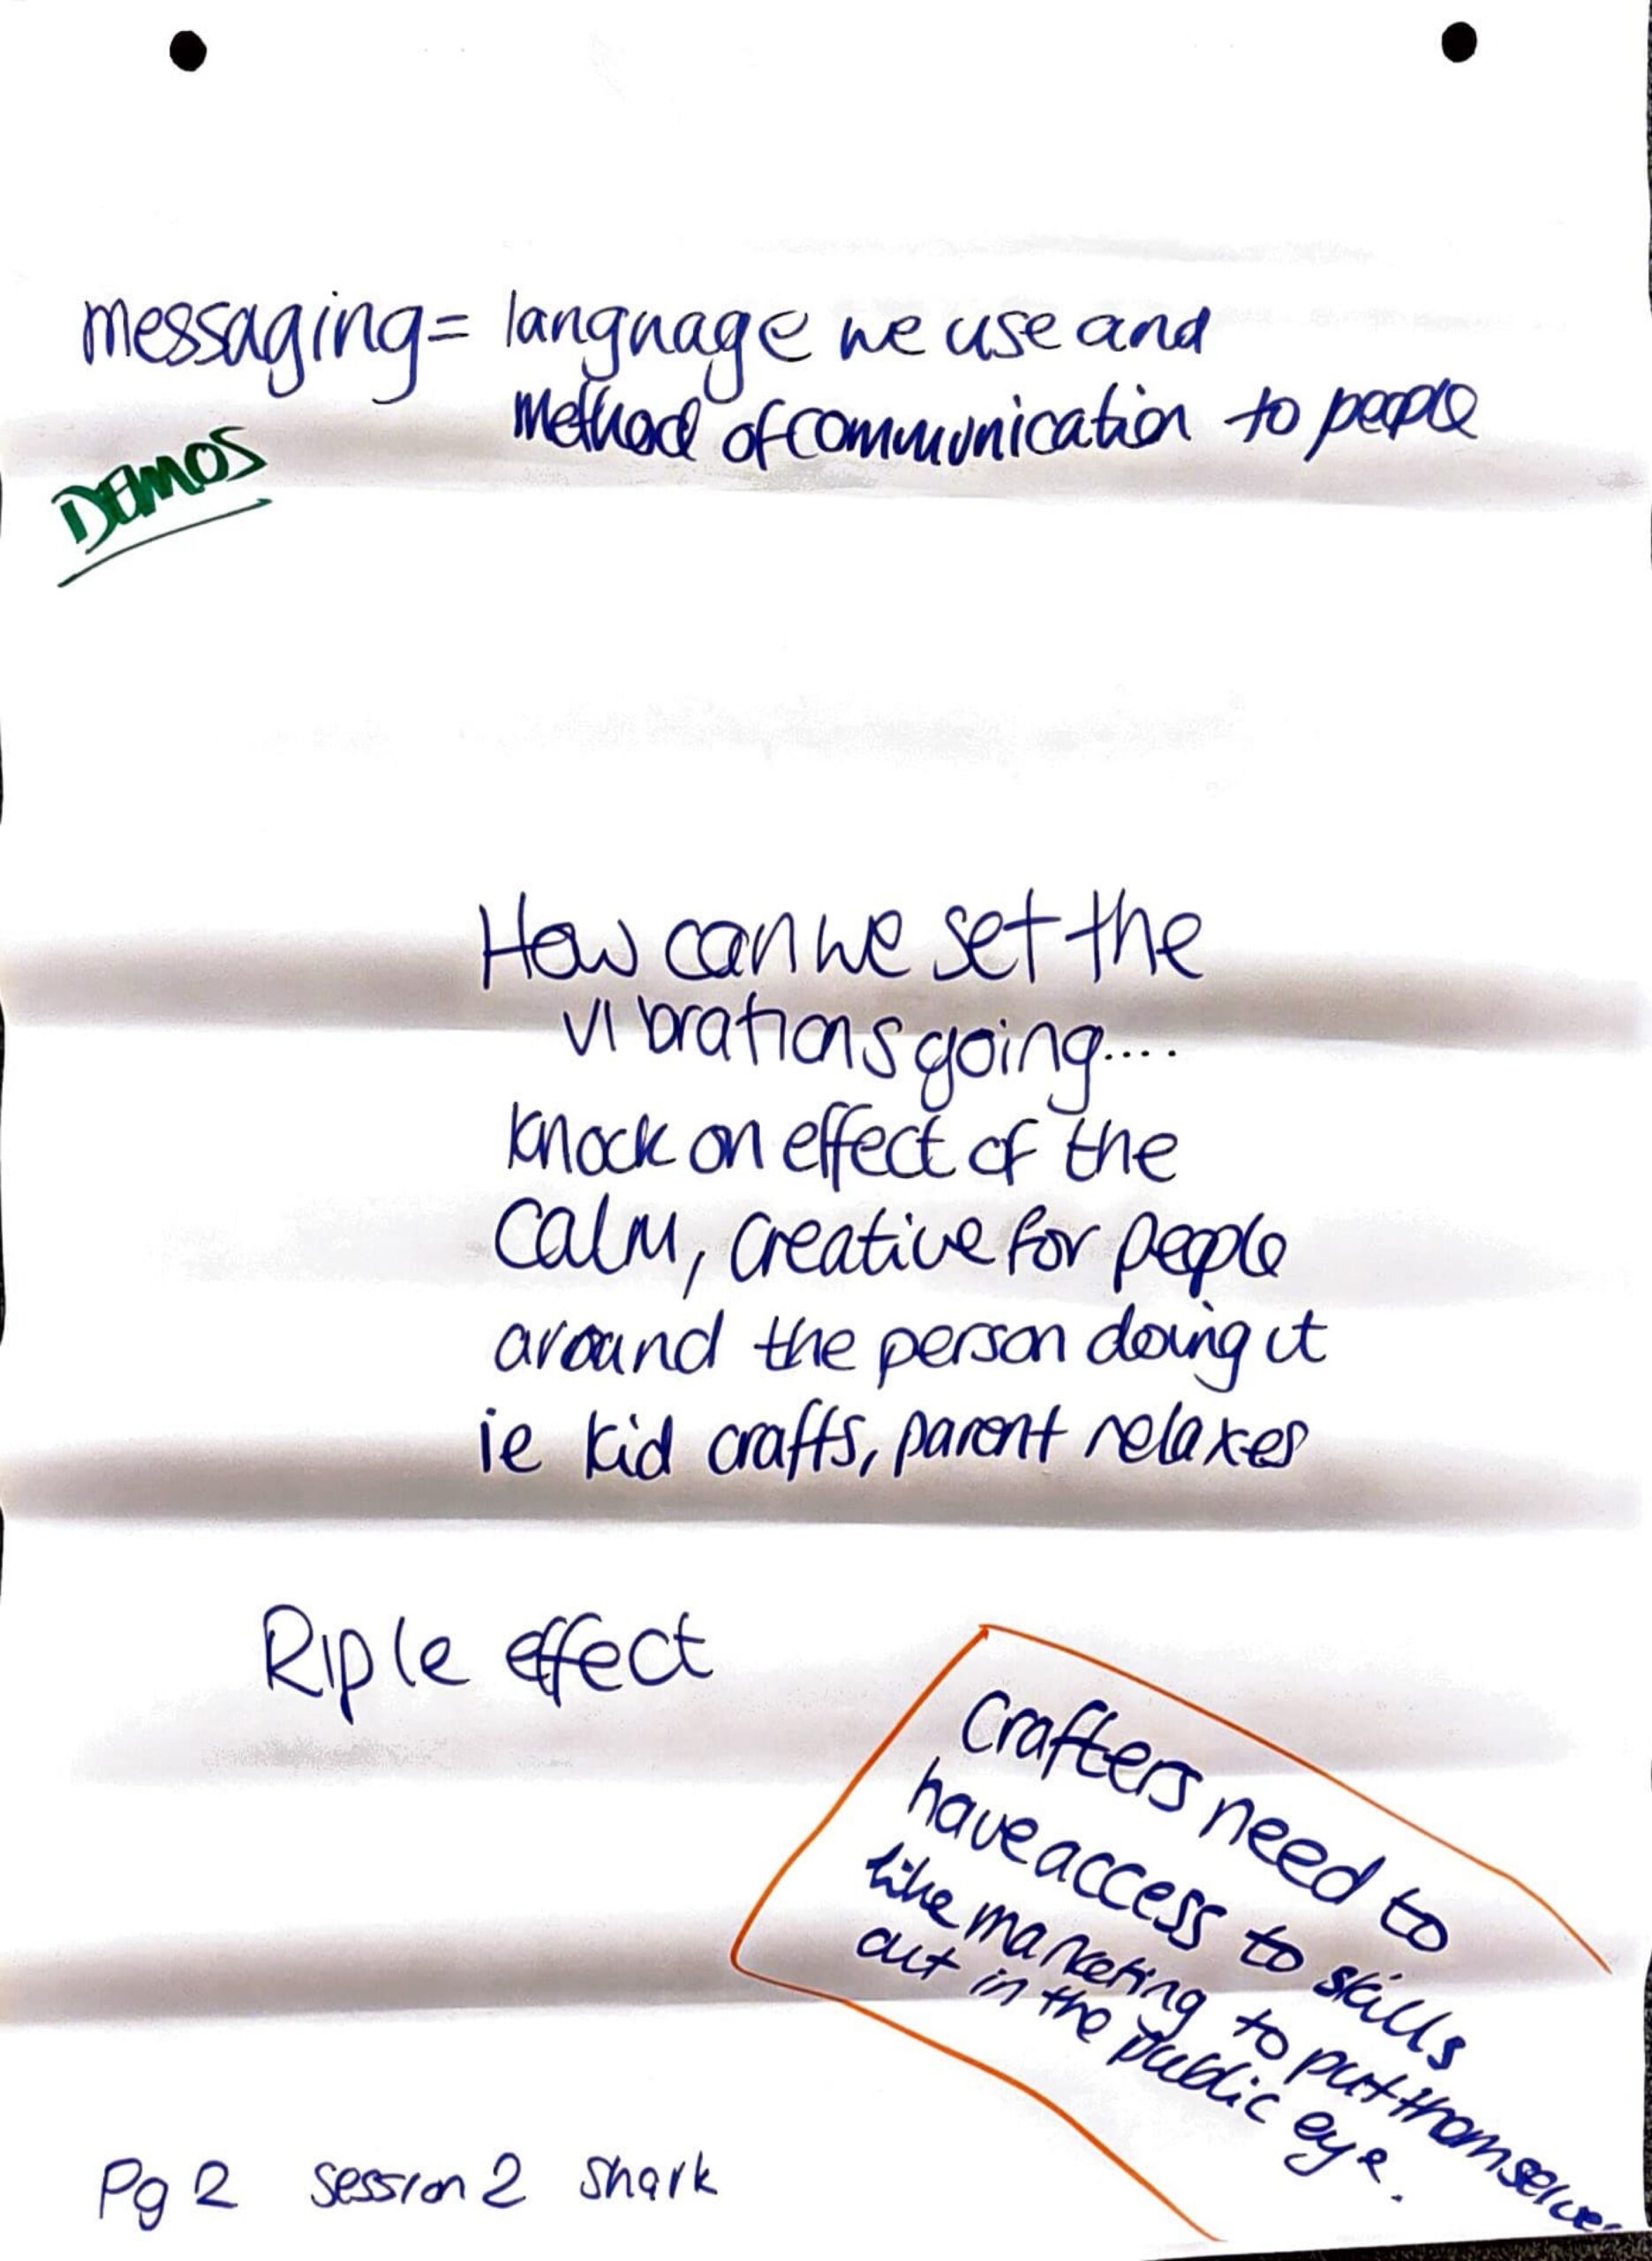 messaging = language we use and
method of communication to people
DEMOS
How can we set the
vibrations going....
knock on effect of the
calm, creative for people
around the person doing it
ie kid crafts, parent relaxes
Riple effect
Crafters need to
have access to skills
like marketing to put themselves
out in the public eye.
Pg 2 session 2 Shark